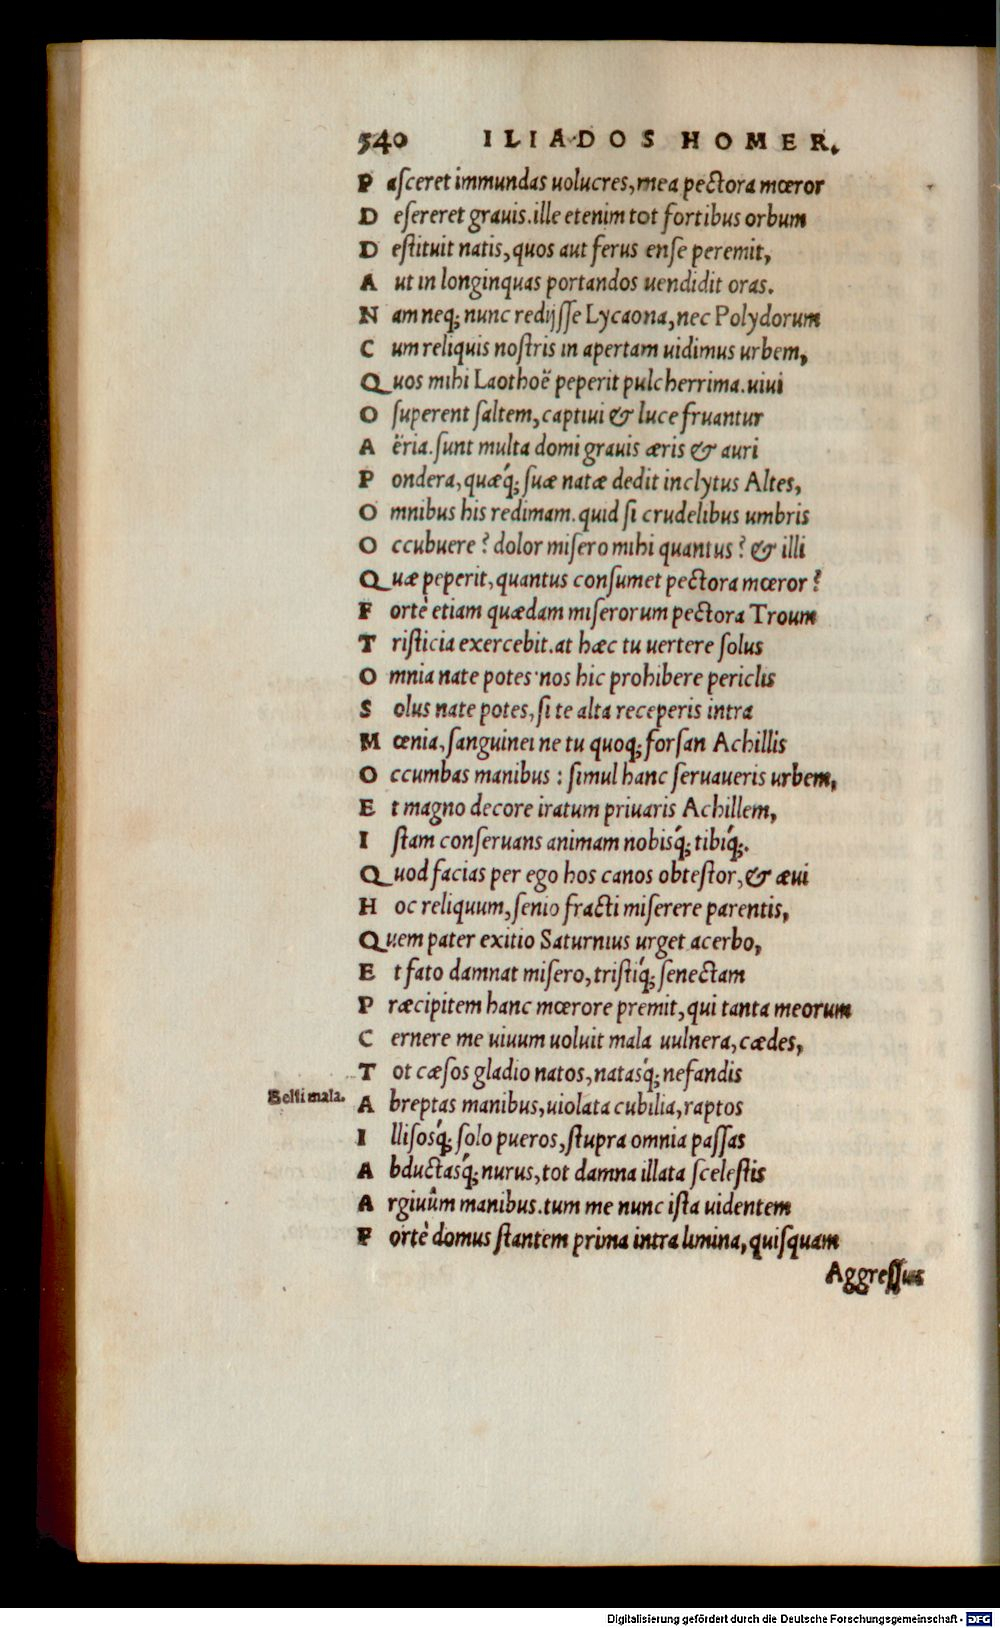 540 ILIADOS HOMER.
Pasceret immundas uolucres, mea pectora mœror
Desereret grauis. ille etenim tot fortibus orbum
Destituit natis, quos aut ferus ense peremit,
Aut in longinquas portandos uendidit oras.
Nam neq; nunc redijsse Lycaona, nec Polydorum
Cum reliquis nostris in apertam uidimus urbem,
Quos mihi Laothoë peperit pulcherrima. uiui
O superent saltem, captiui & luce fruantur
Aëria. sunt multa domi grauis æris & auri
Pondera, quæq́; suæ natæ dedit inclytus Altes,
Omnibus his redimam. quid si crudelibus umbris
Occubuere? dolor misero mihi quantus? & illi
Quæ peperit, quantus consumet pectora mœror?
Fortè etiam quædam miserorum pectora Troum
Tristicia exercebit. at hæc tu uertere solus
Omnia nate potes· nos hic prohibere periclis
Solus nate potes, si te alta receperis intra
Mœnia, sanguinei ne tu quoq; forsan Achillis
Occumbas manibus: simul hanc seruaueris urbem,
Et magno decore iratum priuaris Achillem,
Istam conseruans animam nobisq́; tibiq́;.
Quod facias per ego hos canos obtestor, & æui
Hoc reliquum, senio fracti miserere parentis,
Quem pater exitio Saturnius urget acerbo,
Et fato damnat misero, tristiq́; senectam
Præcipitem hanc mœrore premit, qui tanta meorum
Cernere me uiuum uoluit mala uulnera, cædes,
Tot cæsos gladio natos, natasq́; nefandis
Belli mala.
Abreptas manibus, uiolata cubilia, raptos
Illisosq́; solo pueros, stupra omnia passas
Abductasq́; nurus, tot damna illata scelestis
Argiuûm manibus. tum me nunc ista uidentem
Fortè domus stantem prima intra limina, quisquam
Aggressus
Digitalisierung gefördert durch die Deutsche Forschungsgemeinschaft - DFG